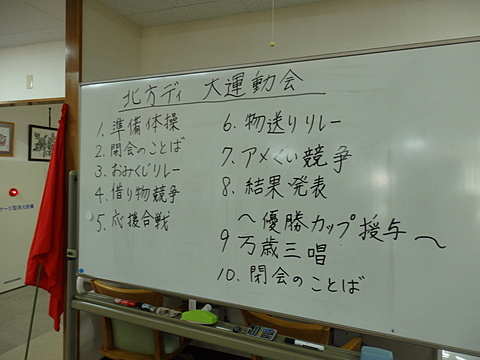 北方ディ 大運動会
1. 準備体操
2. 開会のことば
3. おみくじリレー
4. 借り物競争
5. 応援合戦
6. 物送りリレー
7. アメくい競争
8. 結果発表
〜優勝カップ授与〜
9 万歳三唱
10. 閉会のことば